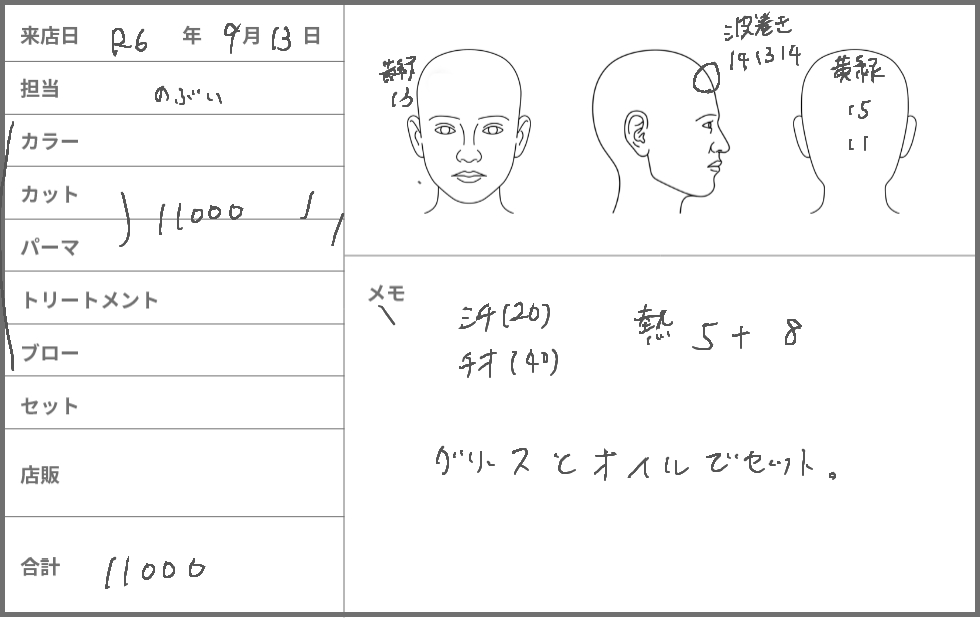 来店日 R6 年 9月 13 日
担当 のぶい
カラー
カット
11000
パーマ
トリートメント
ブロー
セット
店販
合計 11000
黄緑
13
波巻き
14 13 14
黄緑
15
11
メモ
シチ(20)
チオ(40)
熱 5+8
グリースとオイルでセット。